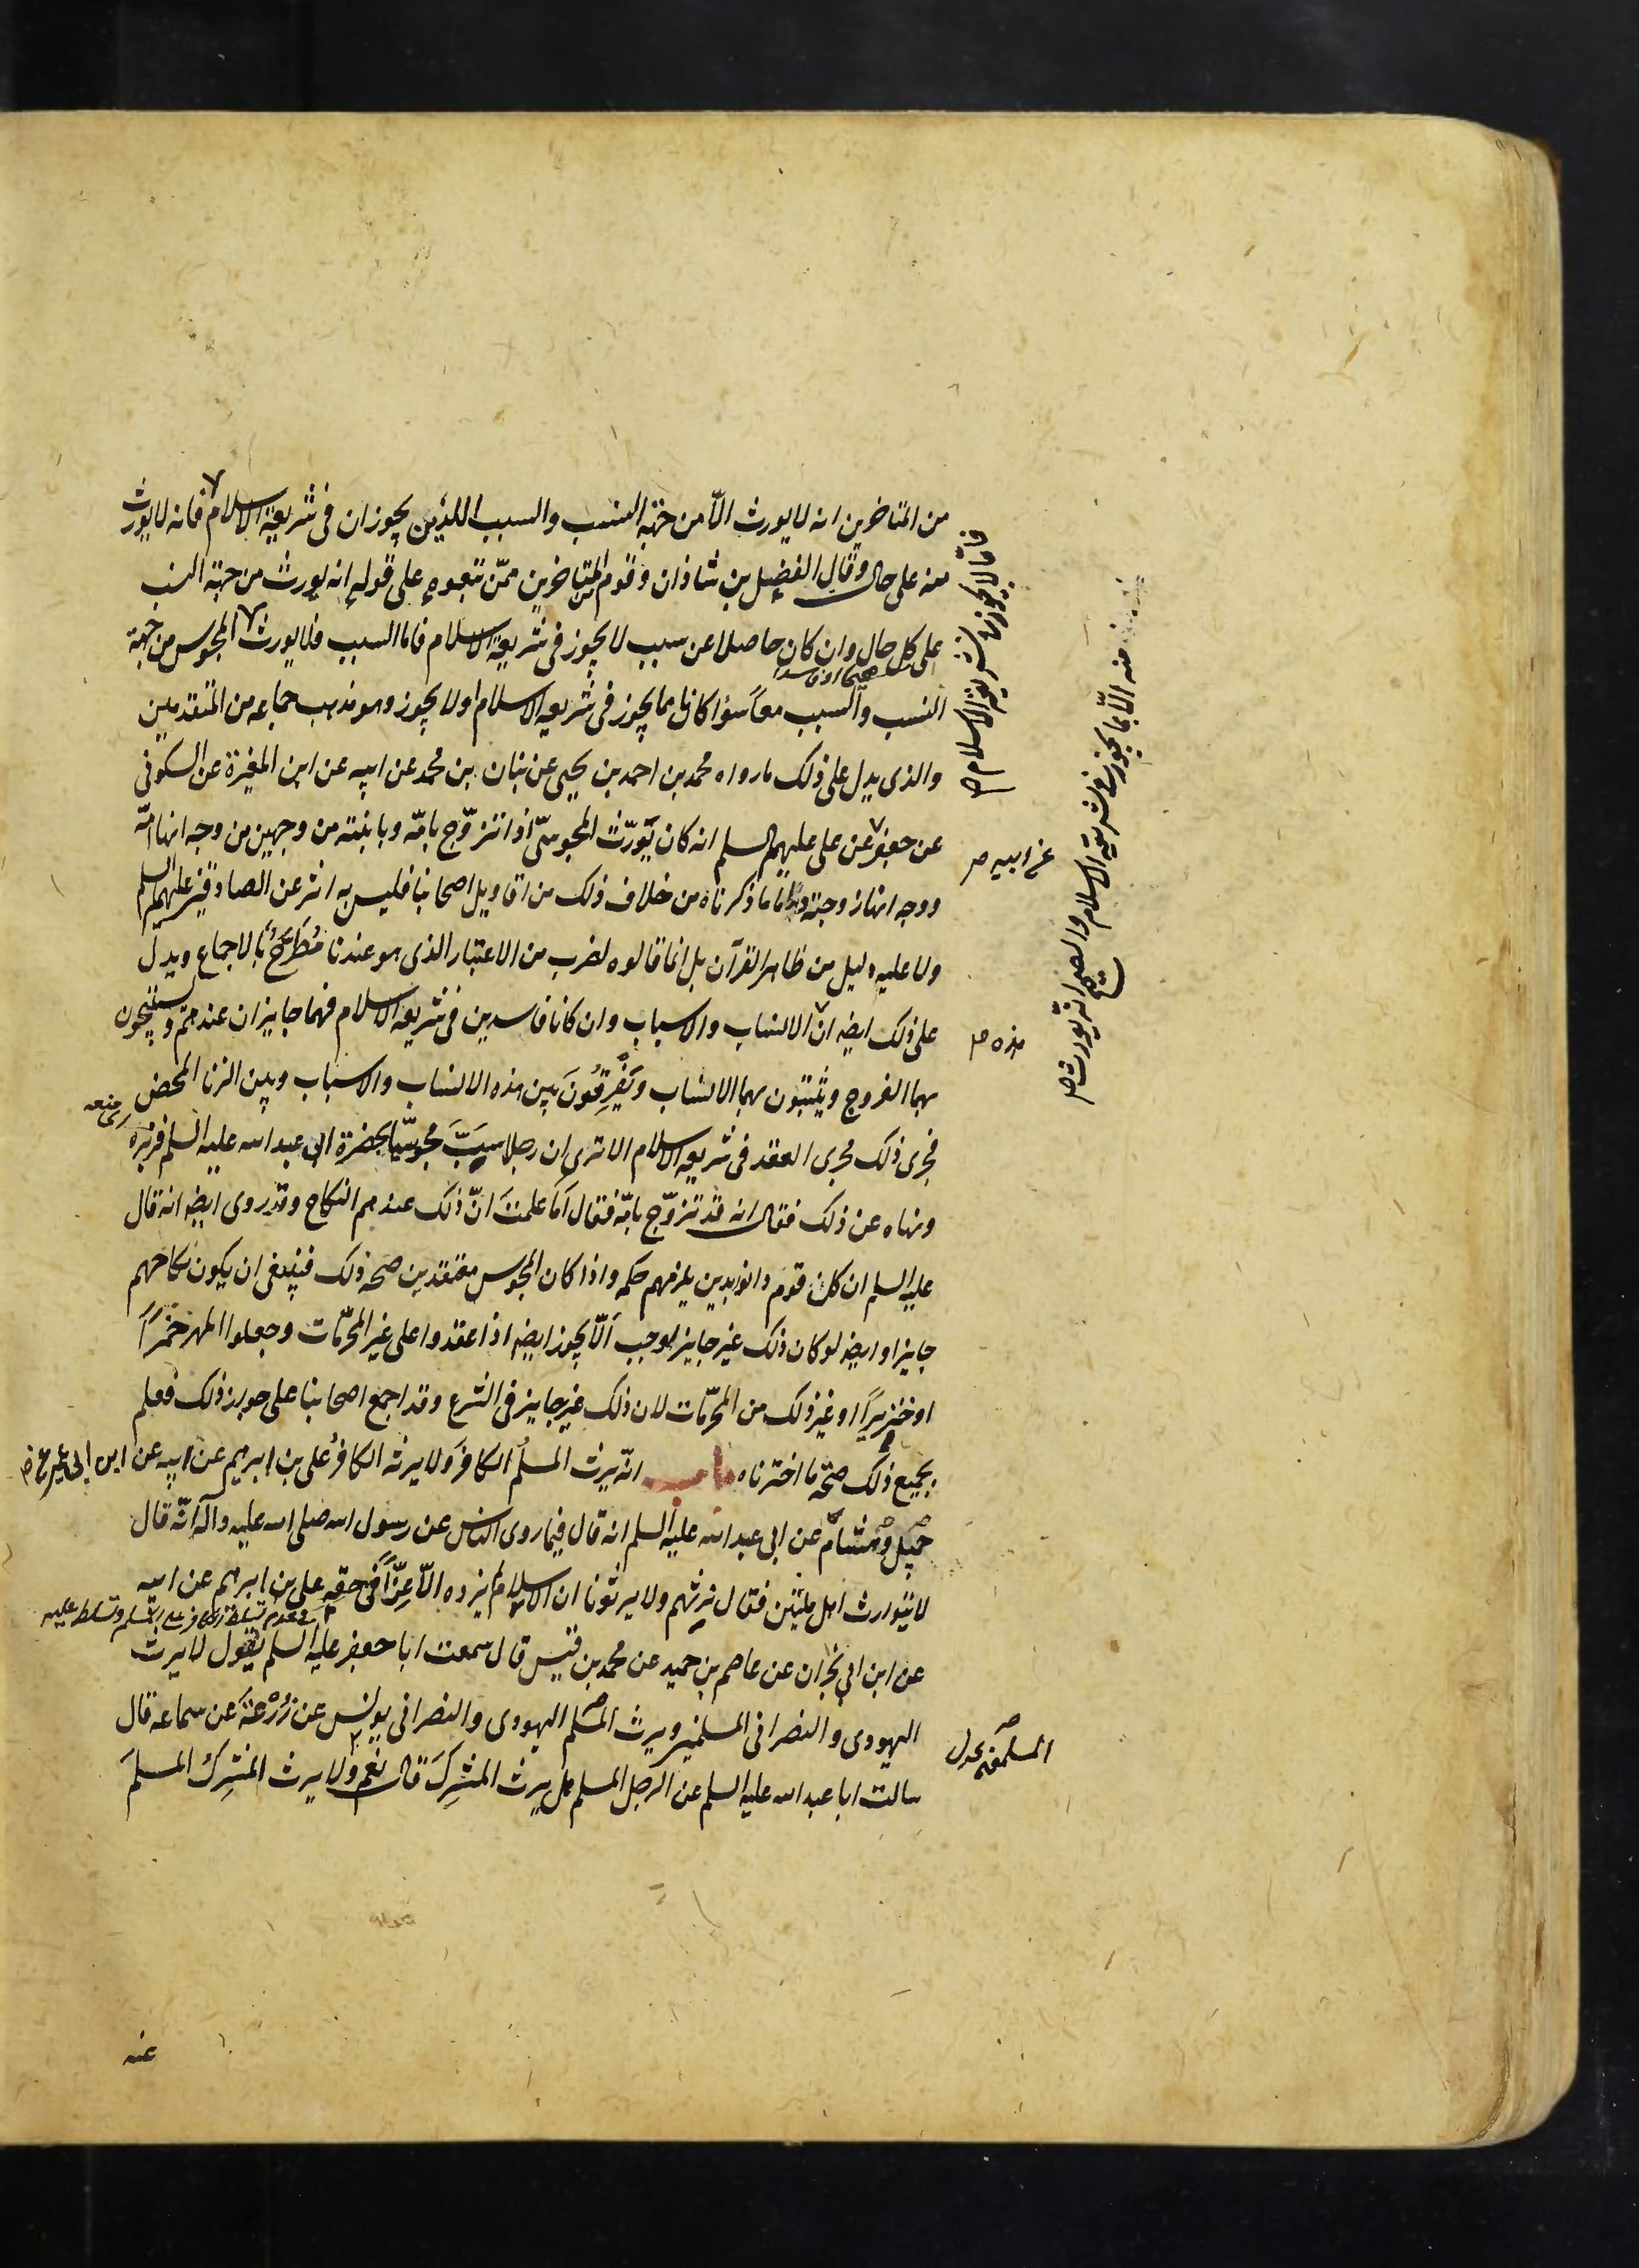 من المتاخرين انه لا يورث الّا من جهة النسب والسبب اللذين يجوزان فى شريعة الاسلام فانه لا يورث
منه على حال وقال الفضل بن شاذان وقوم من المتاخرين ممّن تبعوه على قوله انه يورث من جهة النسب
على كل حال وان كان حاصلا عن سبب لا يجوز فى شريعة الاسلام فاما السبب فلا يورث المجوس من جهة
النسب والسبب معاً سواء كانا مما يجوز فى شريعة الاسلام او لا يجوز وهو مذهب جماعه من المتقدمين
والذى يدل على ذلك ما رواه محمد بن احمد بن يحيى عن بنان بن محمد عن ابيه عن ابن المغيرة عن السكونى
عن جعفر عن على عليهم السلم انه كان يُورّث المجوسىّ اذا تزوّج بامّه وبابنته من وجهين من وجه انها امّه
ووجه انها زوجته واما ما ذكرناه من خلاف ذلك من اقاويل اصحابنا فليس به اثر عن الصادقين عليهم السلم
ولا عليه دليل من ظاهر القرآن بل انما قالوه لضرب من الاعتبار الذى هو عندنا مُطَّرَحٌ بالاجماع ويدل
على ذلك ايضا ان الانساب والاسباب وان كانا فاسدين فى شريعة الاسلام فهما جايزان عندهم ويستبيحون
بهما الفروج ويثبتون بهما الانساب ويَفْرِقُونَ بين هذه الانساب والاسباب وبين الزنا المحض
فجرى ذلك مجرى العقد فى شريعة الاسلام الا ترى ان رجلا سبَّ مجوسيّا بحضرة ابى عبد الله عليه السلم فزبره
ونهاه عن ذلك فقال انه قد تزوّج بامّه فقال اَما علمتَ انّ ذلك عندهم النكاح وقد روى ايضا انه قال
عليه السلم ان كل قوم دانوا بدين يلزمهم حكمه واذا كان المجوس معتقدين صحه ذلك فينبغى ان يكون نكاحهم
جايزا وايضا لو كان ذلك غير جايز لوجب الّا يجوز ايضا اذا عقدوا على غير المحرّمات وجعلوا المهر خمراً
او خنزيراً او غير ذلك من المحرّمات لان ذلك غير جايز فى الشرع وقد اجمع اصحابنا على جواز ذلك فعلم
بجميع ذلك صحّة ما اخترناه باب انّه يرث المسلمُ الكافرَ ولا يرثه الكافرُ على بن ابرهيم عن ابيه عن ابن ابى عمير عن
جميل وهشام عن ابى عبد الله عليه السلم انه قال فيما روى الناس عن رسول الله صلى الله عليه وآله انّه قال
لا يتوارث اهل ملتين فقال نرثهم ولا يرثونا ان الاسلام لم يزده الّا عِزّاً فى حقه على بن ابرهيم عن ابيه
عن ابن ابى نجران عن عاصم بن حميد عن محمد بن قيس قال سمعت ابا جعفر عليه السلم يقول لا يرث
اليهودى والنصرانى المسلمين ويرث المسلم اليهودى والنصرانى يونس عن زُرْعَةَ عن سماعه قال
سالت ابا عبد الله عليه السلم عن الرجل المسلم هل يرث المشركَ قال نعم ولا يرث المشركُ المسلمَ
فاما لا يجوز فى شريعة الاسلام صح
منه الّا بما يجوز فى شريعة الاسلام والصحيح انه يورث صح
عن ابيه صح
هذه صح
عنه